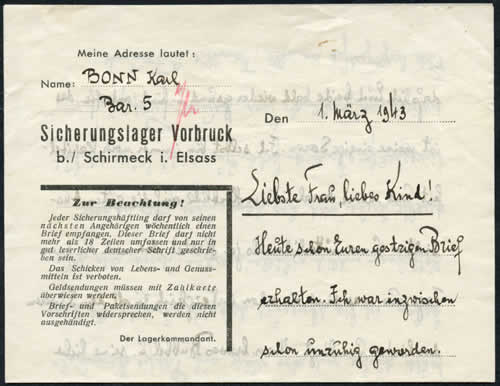 Meine Adresse lautet:
Name: BONN Karl
Bar. 5
Sicherungslager Vorbruck
b./ Schirmeck i. Elsass
Den 1. März 1943
Zur Beachtung!
Jeder Sicherungshäftling darf von seinen
nächsten Angehörigen wöchentlich einen
Brief empfangen. Dieser Brief darf nicht
mehr als 18 Zeilen umfassen und nur in
gut leserlicher deutscher Schrift geschrie-
ben sein.
Das Schicken von Lebens- und Genuss-
mitteln ist verboten.
Geldsendungen müssen mit Zahlkarte
überwiesen werden.
Brief- und Paketsendungen die diesen
Vorschriften widersprechen, werden nicht
ausgehändigt.
Der Lagerkommandant.
Liebste Frau, liebes Kind!
Heute schon Euren gestrigen Brief
erhalten. Ich war inzwischen
schon unruhig geworden.